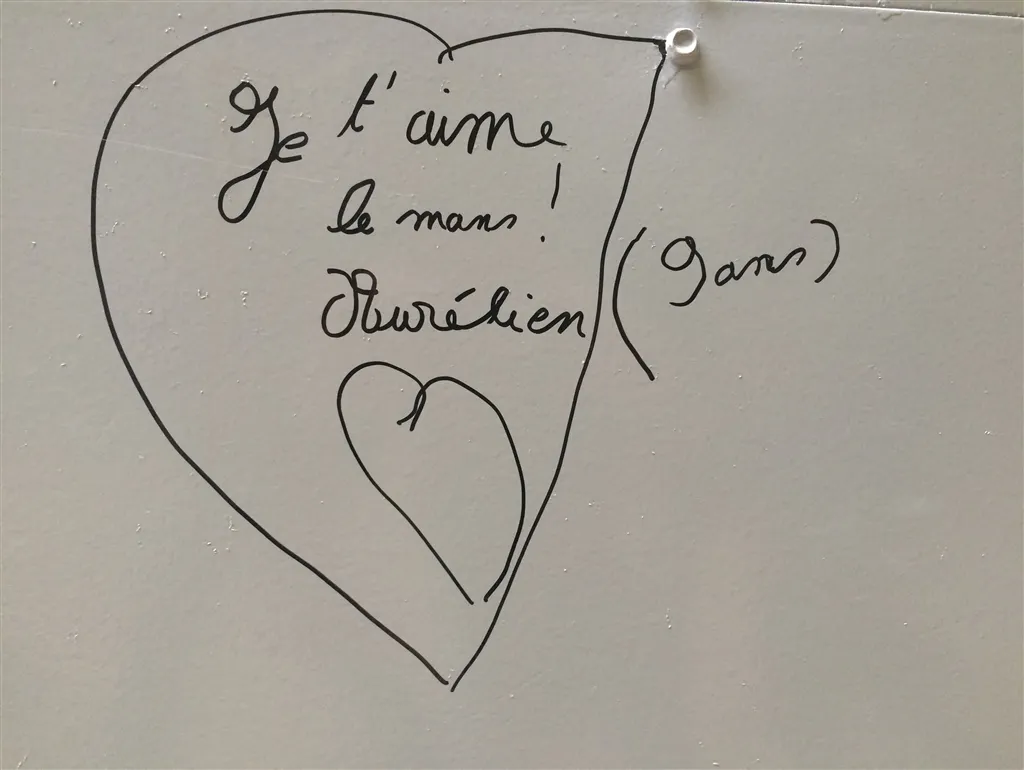 Je t'aime
le mans !
Aurélien
(9 ans)